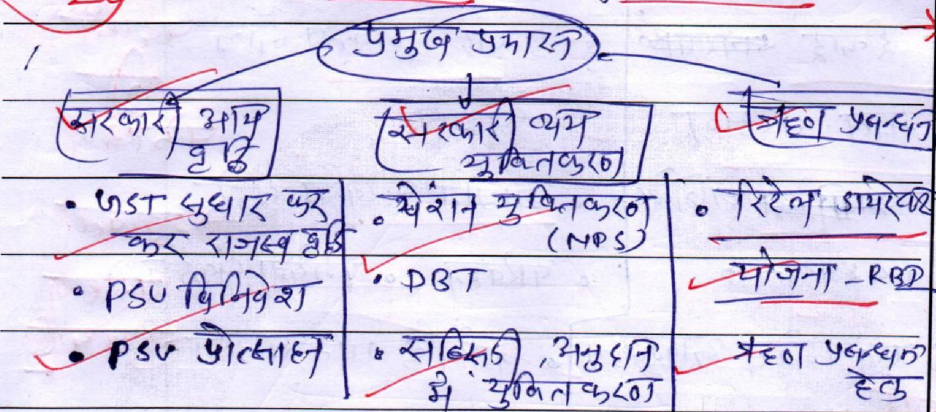 प्रमुख प्रयास
सरकारी आय
वृद्धि
सरकारी व्यय
युक्तिकरण
ऋण प्रबन्धन
• GST सुधार कर
कर राजस्व वृद्धि
• PSU विनिवेश
• PSU प्रोत्साहन
• पेंशन युक्तिकरण
(NPS)
• DBT
• सब्सिडी, अनुदान
में युक्तिकरण
• रिटेल डायरेक्ट
योजना - RBD
ऋण प्रबन्धन
हेतु